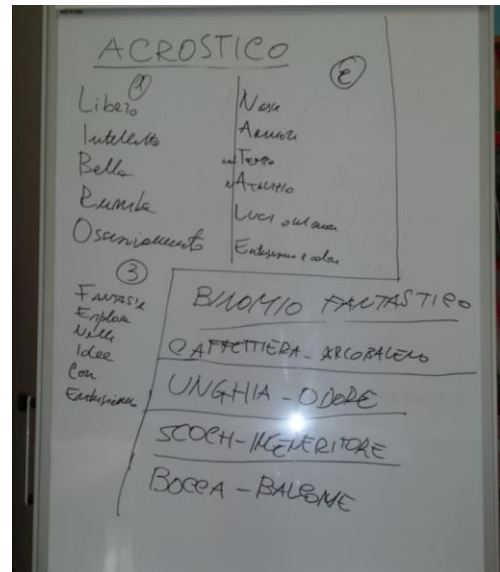 ACROSTICO
1
Libero
Intelletto
Bella
Rumba
2
Nasce
Amore
Tempo
Luci
Entusiasmo e calore
3
FANTASIE
Esplose
Nelle
Idee
Con
Entusiasmo
BINOMIO FANTASTICO
CAFFETTIERA - ARCOBALENO
UNGHIA - ODORE
SCOCH - INGENERITORE
BOCCA - BALCONE